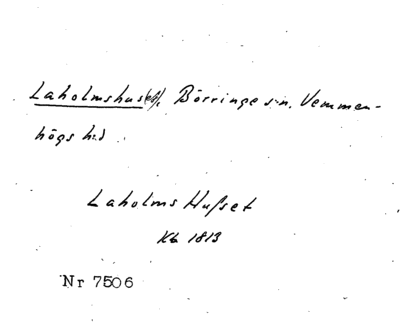 Laholmshus(et), Börringe s:n, Vemmen-
högs h:d
Laholms Husset
Kb 1813
Nr 7506